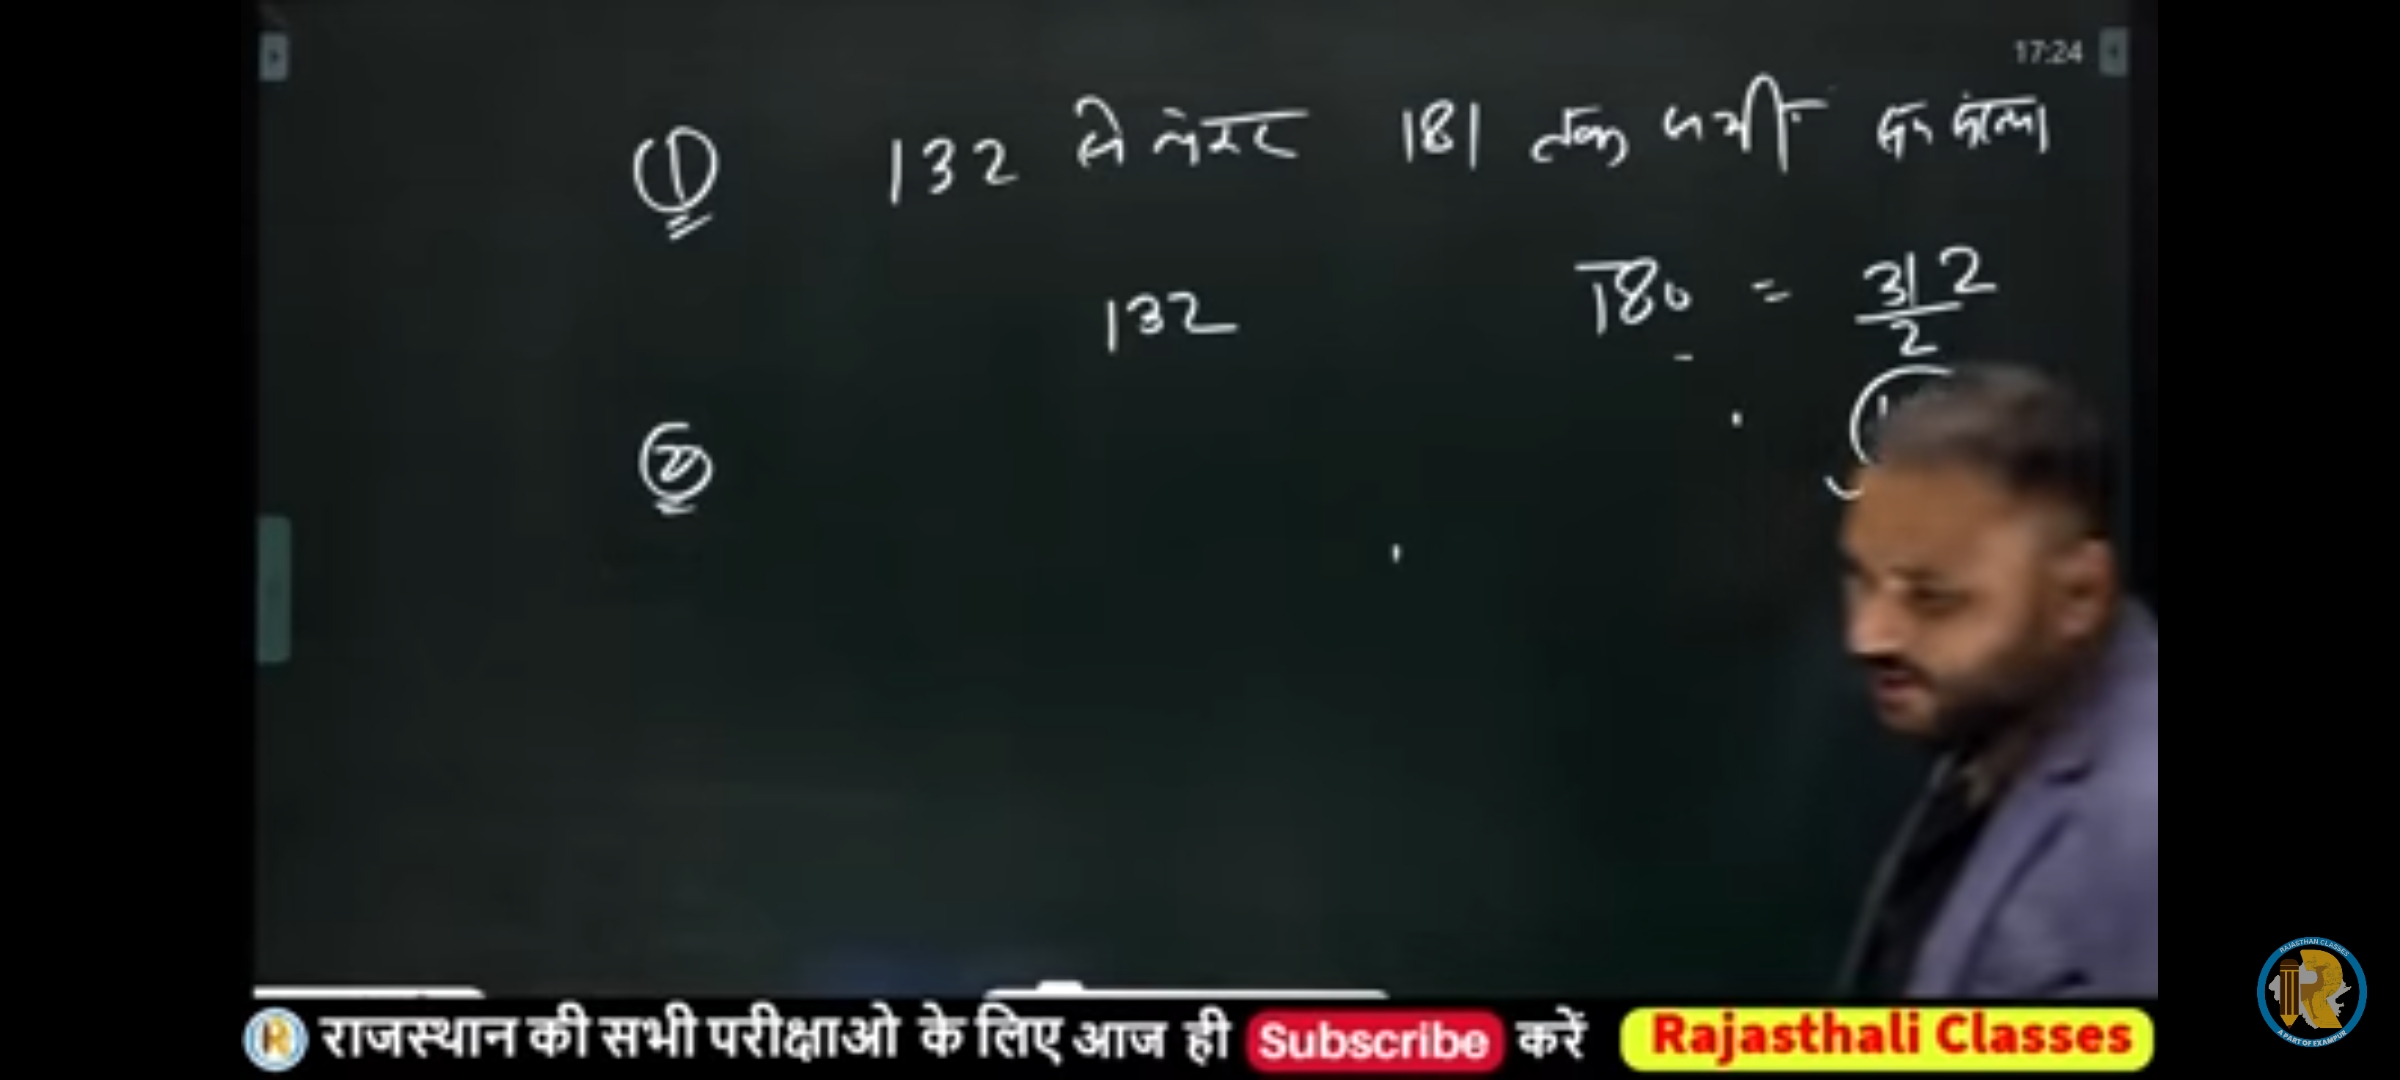 17:24
① 132 से लेकर 181 तक सभी
132 180 = 312/2
②
राजस्थान की सभी परीक्षाओ के लिए आज ही Subscribe करें Rajasthali Classes
RAJASTHAN CLASSES
R
A PART OF EXAMPUR